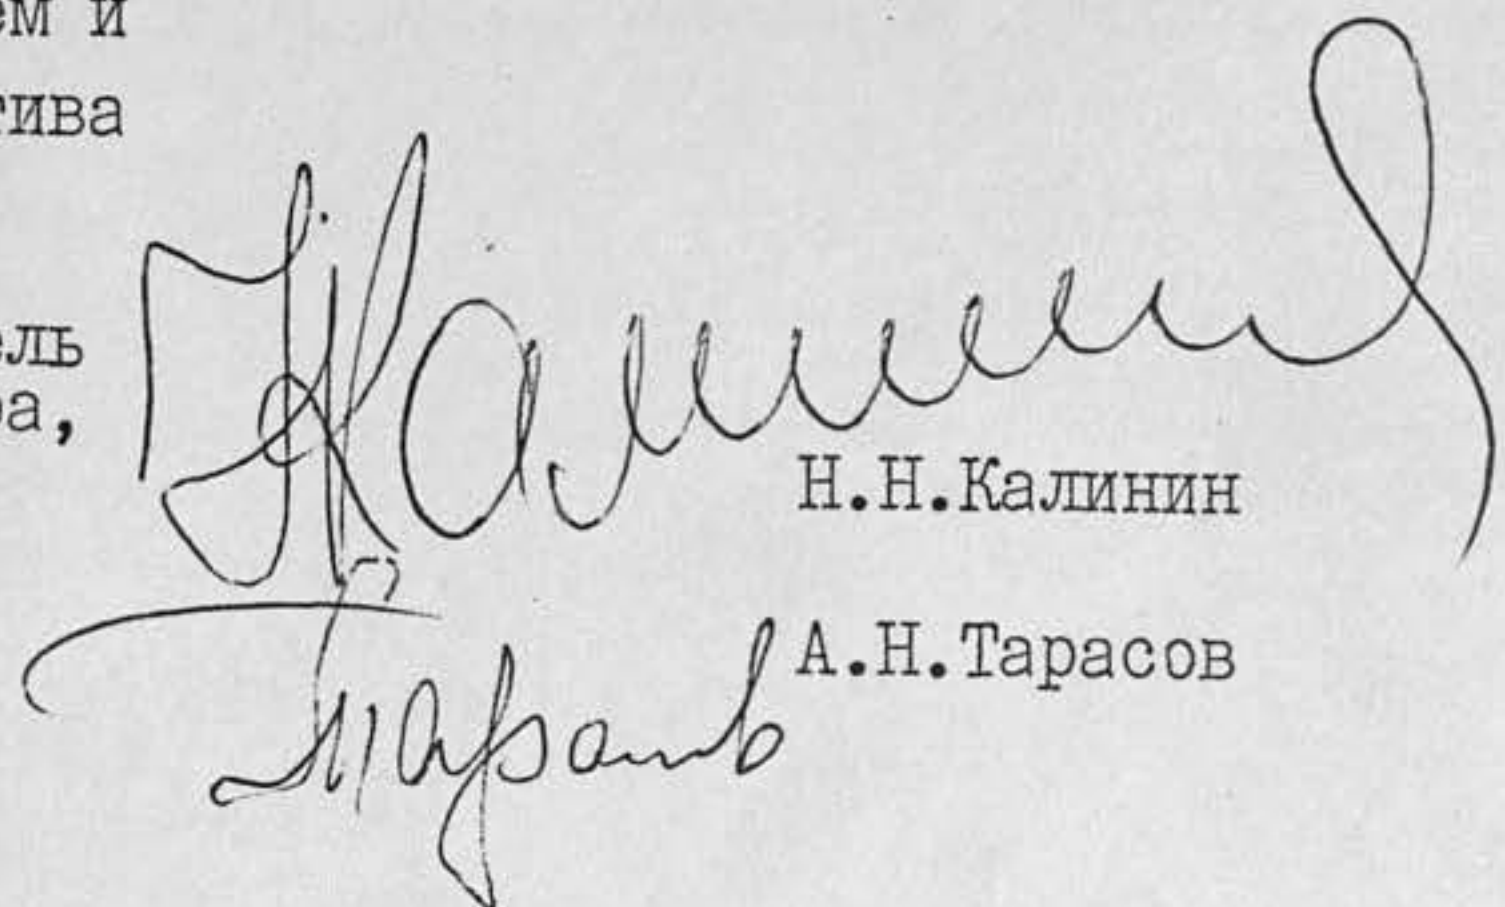 ем и
тива
ель
ра,
Калинин
Н.Н.Калинин
А.Н.Тарасов
Тарасов